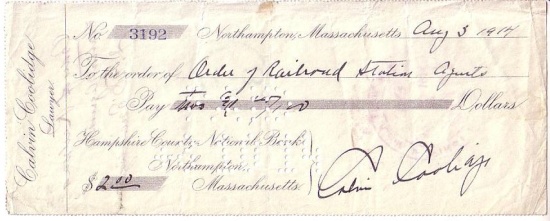 Calvin Coolidge
Lawyer
No 3192 Northampton, Massachusetts Aug 3 1914
To the order of Order of Railroad Station Agents
Pay Two Dollars
Hampshire County National Bank
Northampton,
$2.00 Massachusetts. Calvin Coolidge